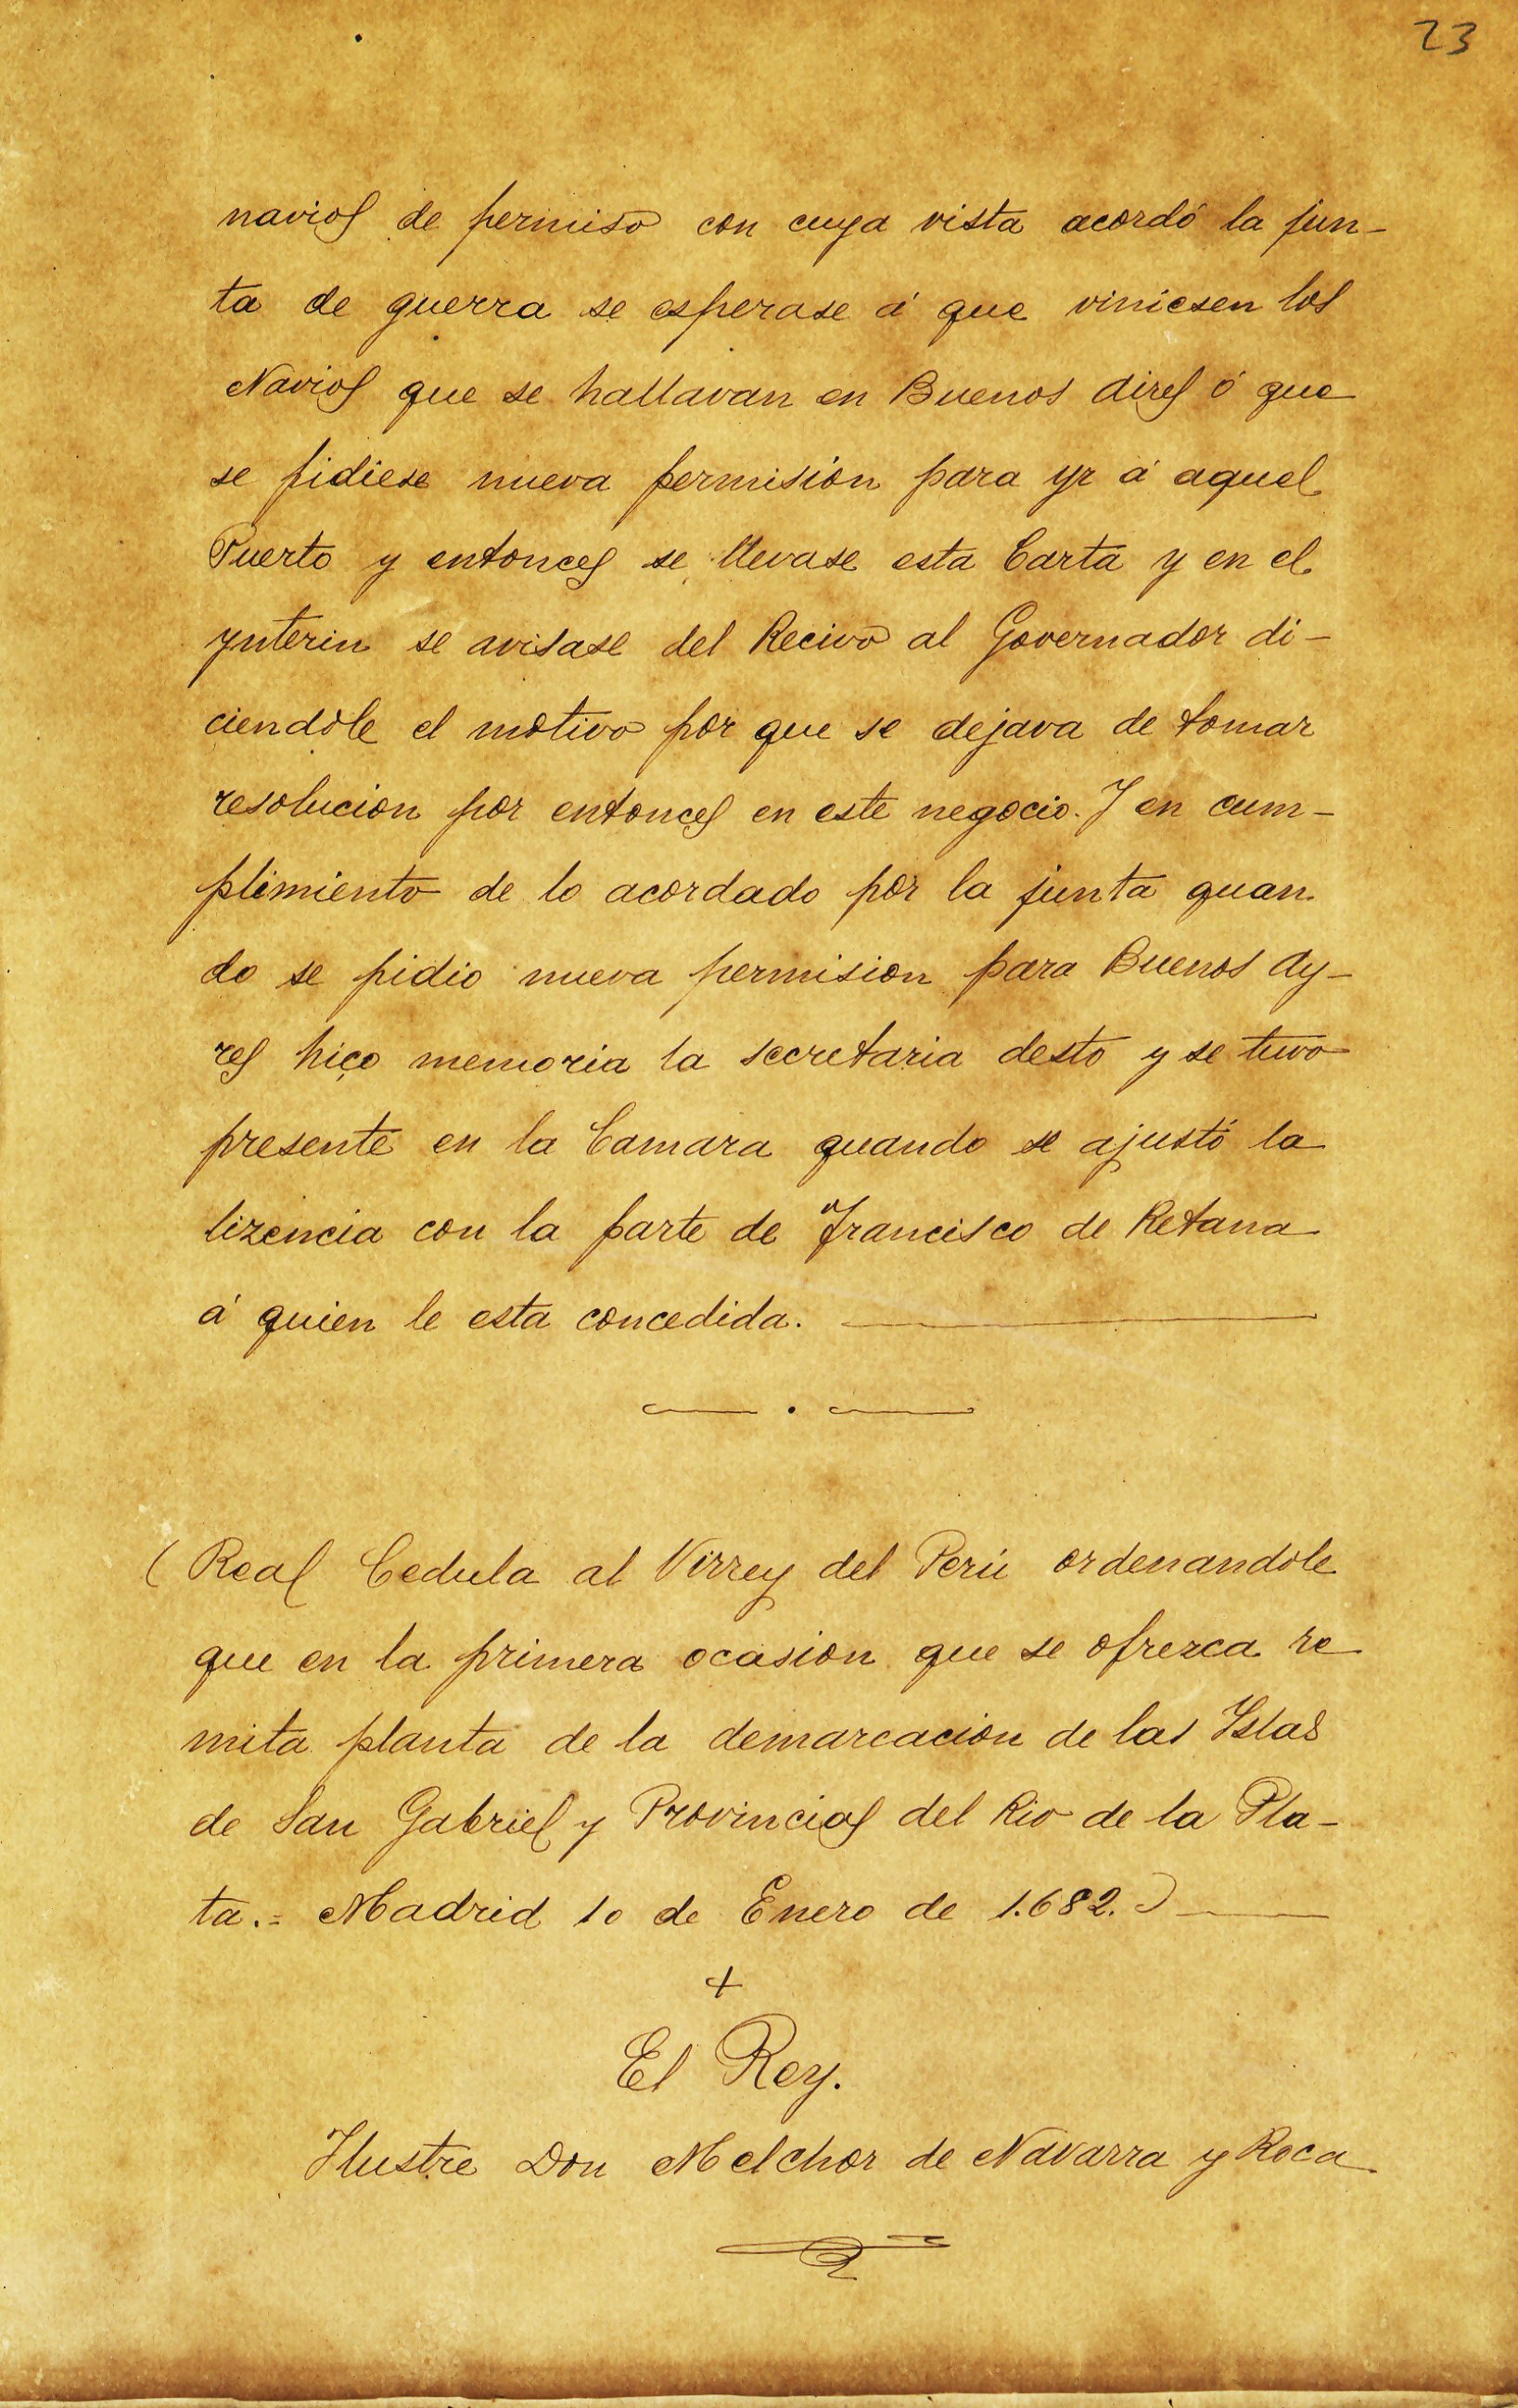 23
navios de permiso con cuya vista acordó la jun-
ta de guerra se esperase á que viniesen los
Navios que se hallavan en Buenos Aires ó que
se pidiese nueva permision para yr á aquel
Puerto y entonces se llevase esta Carta y en el
ynterin se avisase del Recivo al Governador di-
ciendole el motivo por que se dejava de tomar
resolucion por entonces en este negocio. Y en cum-
plimiento de lo acordado por la junta quan
do se pidio nueva permision para Buenos Ay-
res hiço memoria la secretaria desto y se tuvo
presente en la Camara quando se ajustó la
lizencia con la parte de Francisco de Retana
á quien le esta concedida.
(Real Cedula al Virrey del Perú ordenandole
que en la primera ocasion que se ofrezca re
mita planta de la demarcacion de las Yslas
de San Gabriel y Provincias del Rio de la Pla-
ta.= Madrid 10 de Enero de 1.682.)
+
El Rey.
Ilustre Don Melchor de Navarra y Roca